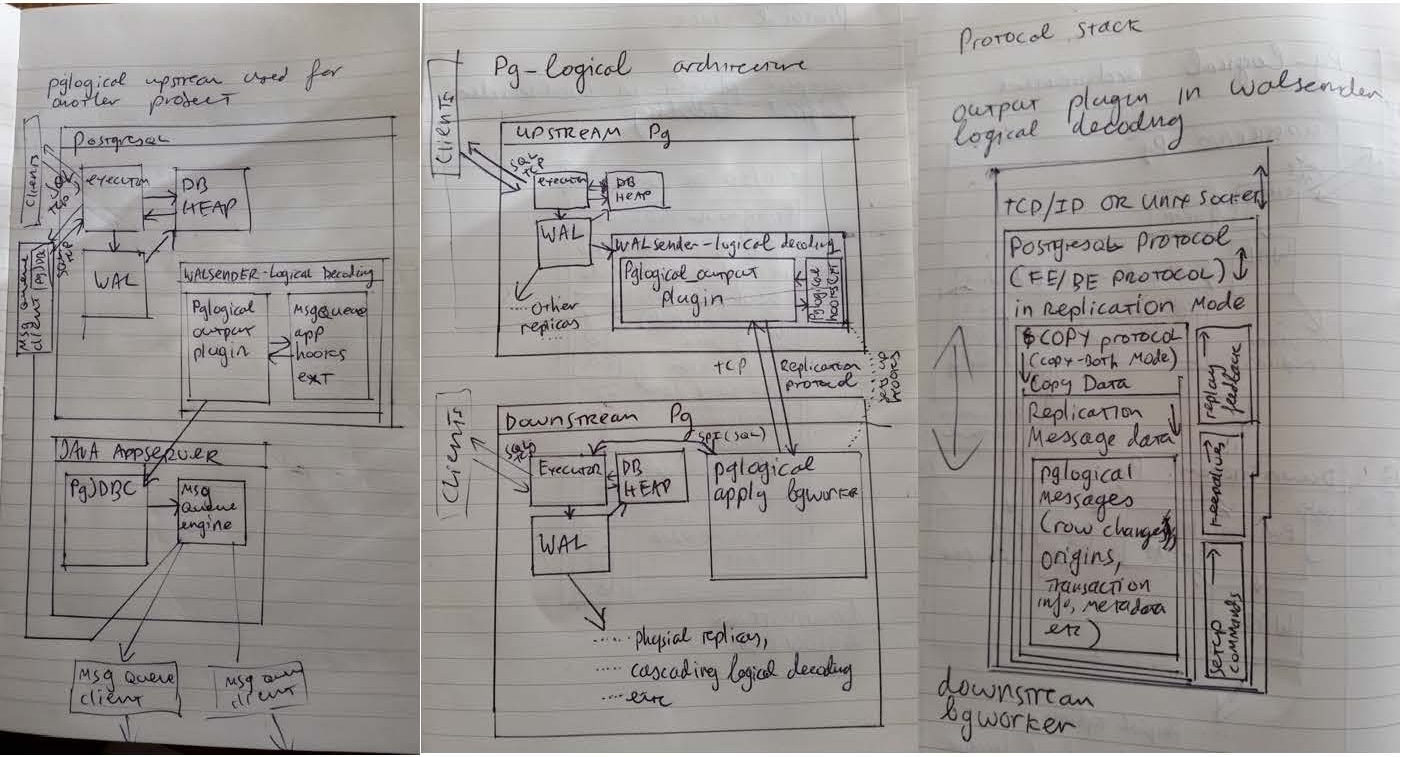 pglogical upstream used for
another project
Clients
Postgresql
executor
DB
HEAP
WAL
Msg queue
client
PgJDBC
WALSENDER-Logical Decoding
Pglogical
output
plugin
MsgQueue
app
hooks
ext
JAVA AppSERVER
PgJDBC
Msg
queue
engine
Msg Queue
client
Msg Queue
client
Pg-logical architecture
Clients
UPSTREAM Pg
SQL
TCP
executor
DB
HEAP
WAL
..... Other
replicas ....
WALsender-logical decoding
Pglogical_output
plugin
Pglogical
hooks
TCP
Replication
protocol
Clients
DOWNSTREAM Pg
SPI (SQL)
Executor
DB
HEAP
WAL
pglogical
apply bgworker
...... physical replicas,
..... cascading logical decoding
.... etc
Protocol stack
output plugin in walsender
logical decoding
TCP/IP OR Unix Socket
Postgresql Protocol
(FE/BE PROTOCOL)
in Replication MoDe
COPY protocol
(copy-Both Mode)
Copy Data
Replication
Message data
pglogical
messages
(row changes,
origins,
transaction
info, metadata
etc)
replay
feedback
Keepalives
setup
commands
downstream
bgworker